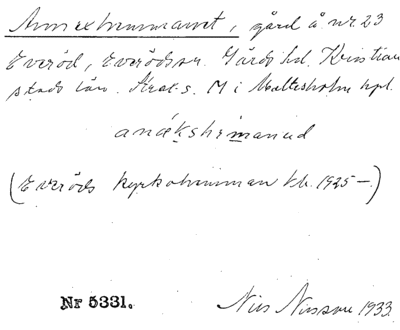 Annexhemmanet, gård å nr. 23
Everöd, Everöds sn. Gärds hd. Kristian
stads län. M i Maltesholm kpl.
anǽkshemanəd
(Everöds kyrkohemman kb. 1925–)
Nr 5331.
Nils Nilsson 1933.